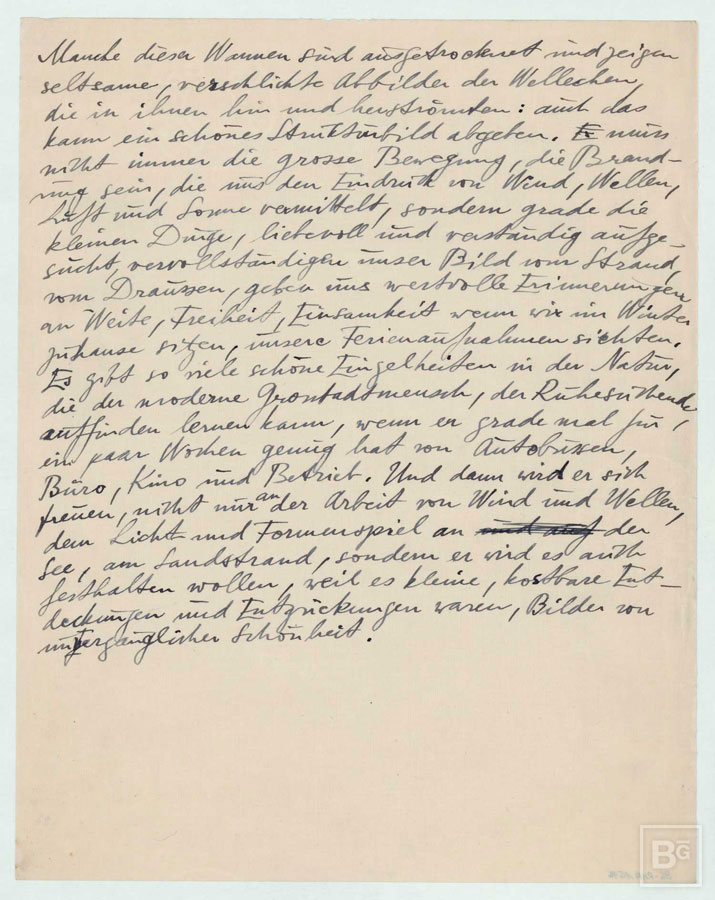 Manche dieser Wannen sind ausgetrocknet und zeigen
seltsame, verschlickte Abbilder der Wellchen,
die in ihnen hin und herströmten: auch das
kann ein schönes Strukturbild abgeben. Es muss
nicht immer die grosse Bewegung, die Brand-
ung sein, die uns den Eindruck von Wind, Wellen,
Luft und Sonne vermittelt, sondern grade die
kleinen Dinge, liebevoll und verständig aufge-
sucht, vervollständigen unser Bild vom Strand,
vom Draussen, geben uns wertvolle Erinnerungen
an Weite, Freiheit, Einsamkeit wenn wir im Winter
zuhause sitzen, unsere Ferienaufnahmen sichten.
Es gibt so viele schöne Einzelheiten in der Natur,
die der moderne Grosstadtmensch, der Ruhesuchende,
auffinden lernen kann, wenn er grade mal für
ein paar Wochen genug hat von Autobussen,
Büro, Kino und Betrieb. Und dann wird er sich
freuen, nicht nur an der Arbeit von Wind und Wellen,
dem Licht- und Formenspiel an und auf der
See, am Sandstrand, sondern er wird es auch
festhalten wollen, weil es kleine, kostbare Ent-
deckungen und Entzückungen waren, Bilder von
unvergänglicher Schönheit.
BG